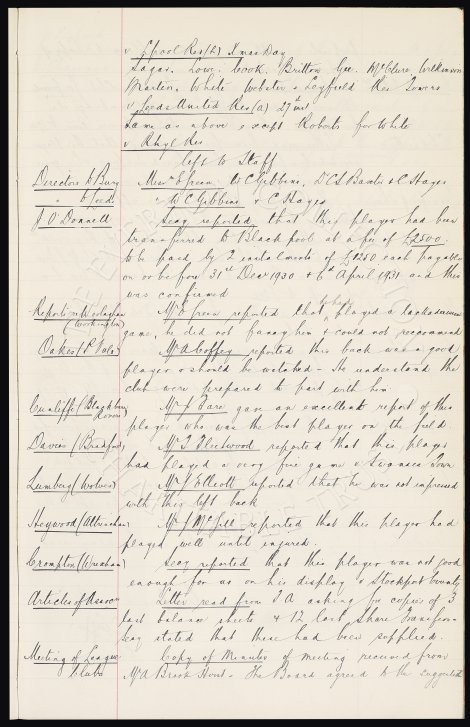 v L'pool Res (h) Xmas Day
Sagar, Lowe, Cook, Britton, Gee, McClure, Wilkinson
Martin, White, Webster & Leyfield Res Towers
v Leeds United Res (a) 27th inst
Same as above except Roberts for White
v Rhyl Res
left to Staff
Directors to Bury Messrs E Green, W C Gibbins, D C S Baxter & C Hayes
" to Leeds " W C Gibbins & C Hayes
J. O'Donnell Secy reported that this player had been
transferred to Blackpool at a fee of £2500.
to be paid by 2 instalments of £1250 each payable
on or before 31st Decr 1930 & 6th April 1931 and this
was confirmed
Reports re Mr E Green reported that he played a lackadaisical
(Workington) game, he did not fancy him & could not recommend
Oakes (P. Vale) Mr A Coffey reported this back was a good
player & should be watched - He understood the
club were prepared to part with him
Cunliffe (Blackburn Mr J Fare gave an excellent report of this
Rovers) player who was the best player on the field.
Davies (Bradford) Mr T Fleetwood reported that this player
had played a very fine game v Swansea Town
Lumberg (Wolves) Mr J Elliott reported that he was not impressed
with this left back
Hogwood (Altrincham) Mr J McGill reported that this player had
played well until injured.
Crompton (Wrexham) Secy reported that this player was not good
enough for us on his display v Stockport County
Articles of Assocn Letter read from F A asking for copies of 3
last balance sheets & 12 last Share Transfers
Secy stated that these had been supplied.
Meeting of League Copy of Minutes of meeting received from
Clubs Mr A Brook Hirst - The Board agreed to the suggested